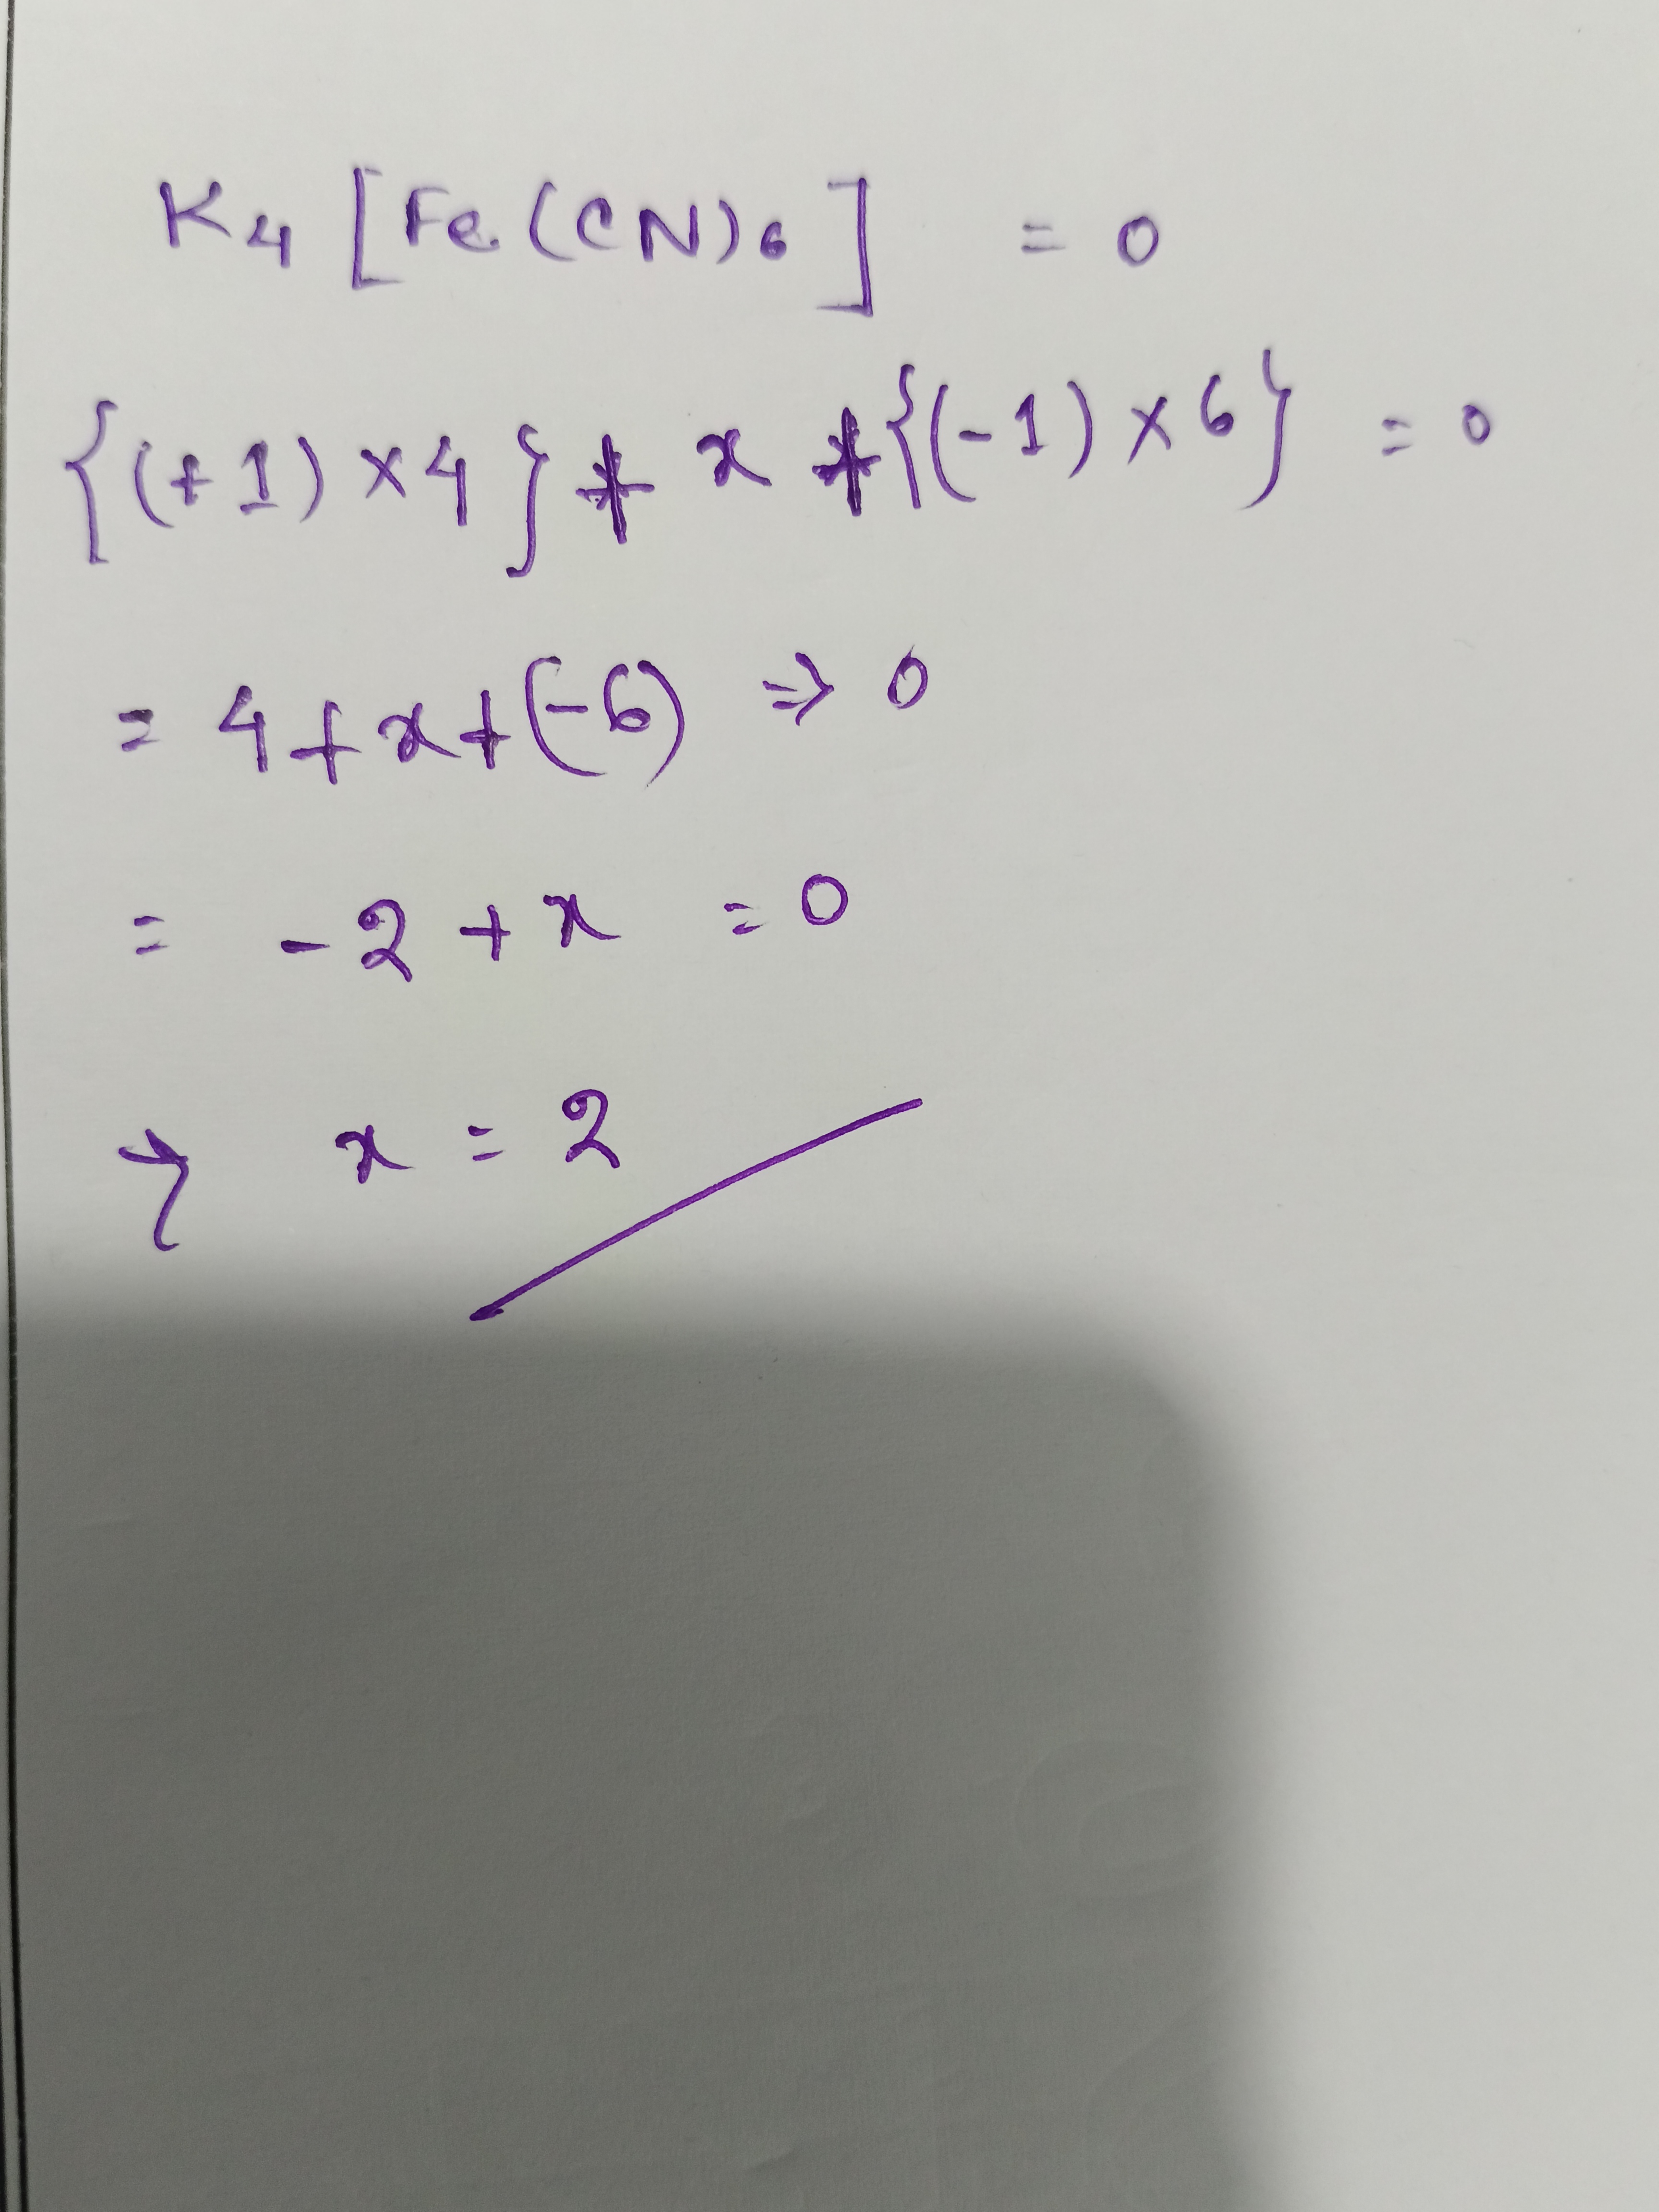 K₄ [Fe(CN)₆] = 0
{(+1) × 4} + x + {(-1) × 6} = 0
= 4 + x + (-6) ⇒ 0
= -2 + x = 0
→ x = 2